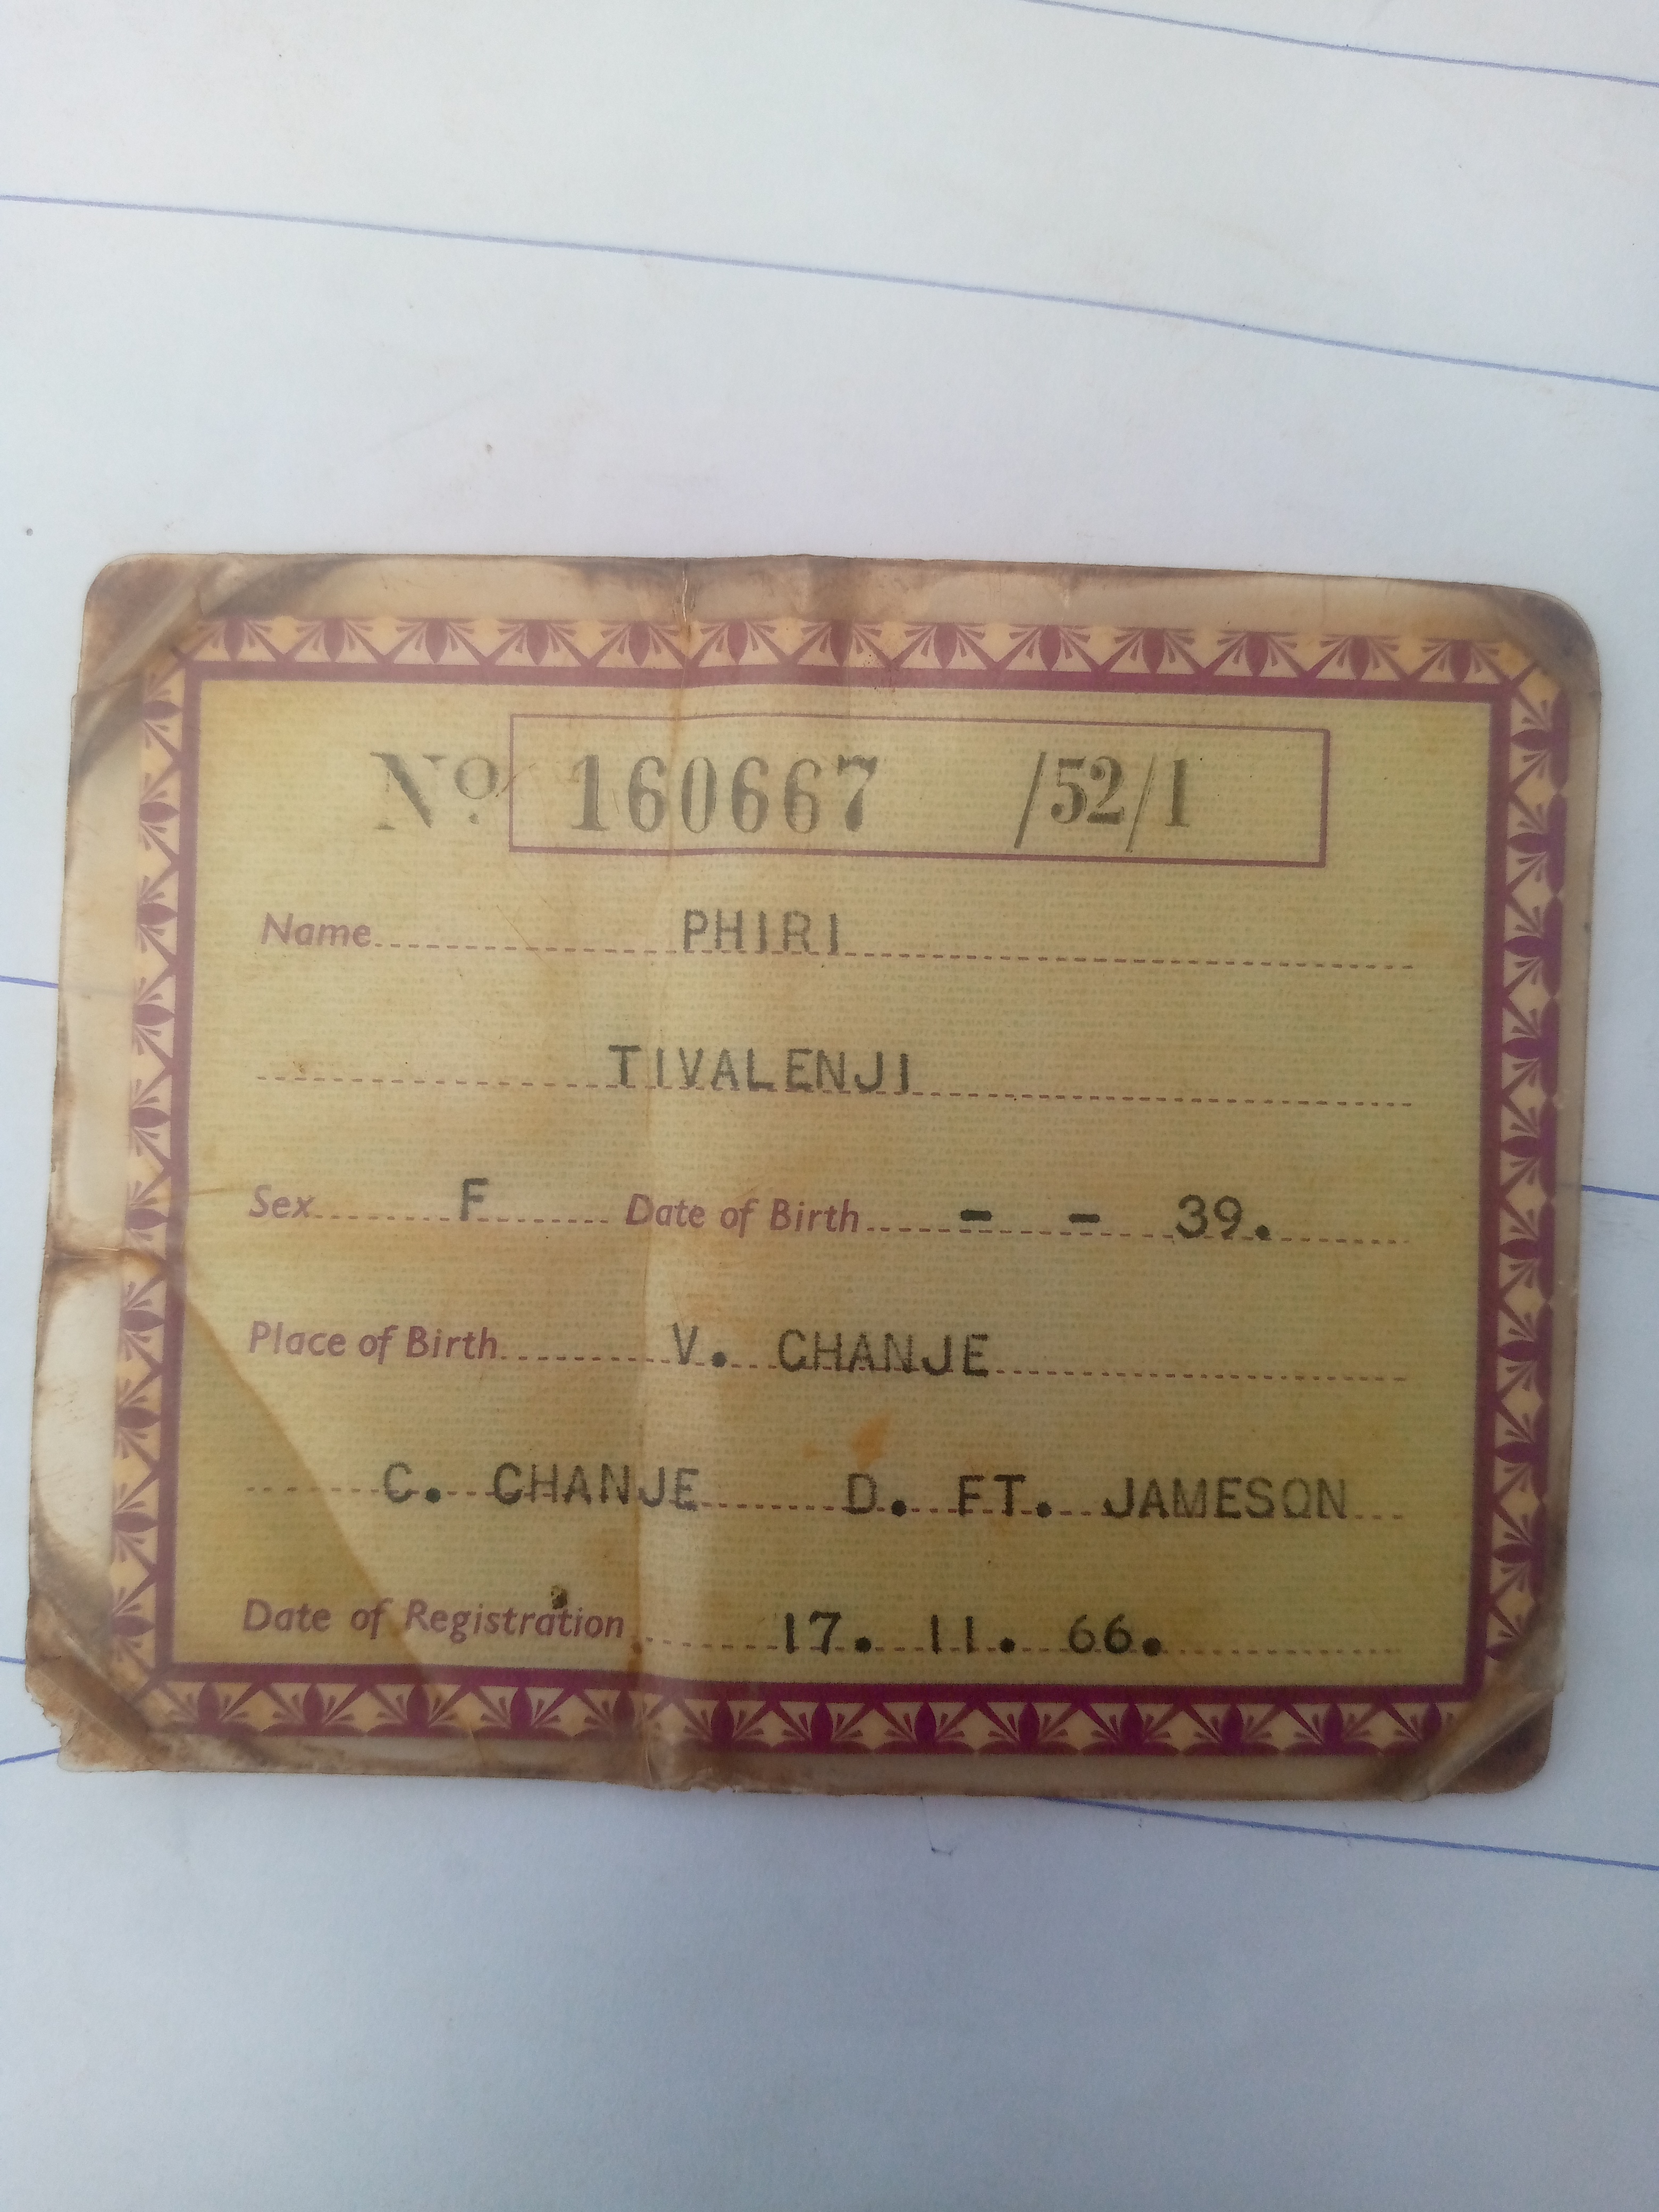 No 160667 /52/1
Name PHIRI
TIVALENJI
Sex F Date of Birth - - 39.
Place of Birth V. CHANJE
C. CHANJE D. FT. JAMESON
Date of Registration 17. 11. 66.